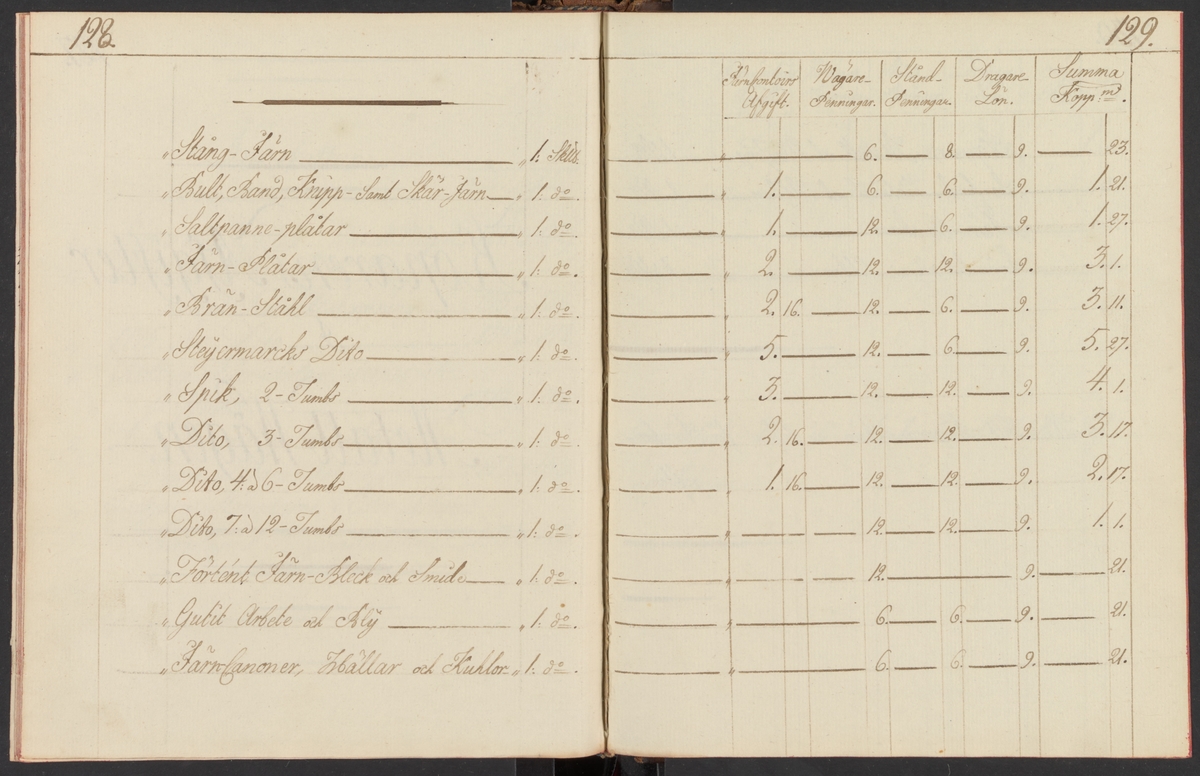 128.
129.
Järn Contoirs Afgift. Wägare-Penningar. Stånd-Penningar. Dragare-Lön. Summa Kopp:md.
„ Stång-Järn „ 1: Sk℔. „ 6. 8. 9. 23.
„ Bult, Band, Knipp- samt Skär-Järn „ 1: do. „ 1. 6. 6. 9. 1. 21.
„ Saltpanne-plåtar „ 1: do. „ 1. 12. 6. 9. 1. 27.
„ Järn-Plåtar „ 1: do. „ 2. 12. 12. 9. 3. 1.
„ Brän-Ståhl „ 1: do. „ 2. 16. 12. 6. 9. 3. 11.
„ Steyermarcks Dito „ 1: do. „ 5. 12. 6. 9. 5. 27.
„ Spik, 2-Tumbs „ 1: do. „ 3. 12. 12. 9. 4. 1.
„ Dito, 3-Tumbs „ 1: do. „ 2. 16. 12. 12. 9. 3. 17.
„ Dito, 4: à 6-Tumbs „ 1: do. „ 1. 16. 12. 12. 9. 2. 17.
„ Dito, 7: à 12-Tumbs „ 1: do. „ 12. 12. 9. 1. 1.
„ Förtént Järn-Bleck och Smide „ 1: do. „ 12. 9. 21.
„ Gutit Arbete och Blÿ „ 1: do. „ 6. 6. 9. 21.
„ Järn-Canoner, Hällar och Kuhlor „ 1: do. „ 6. 6. 9. 21.